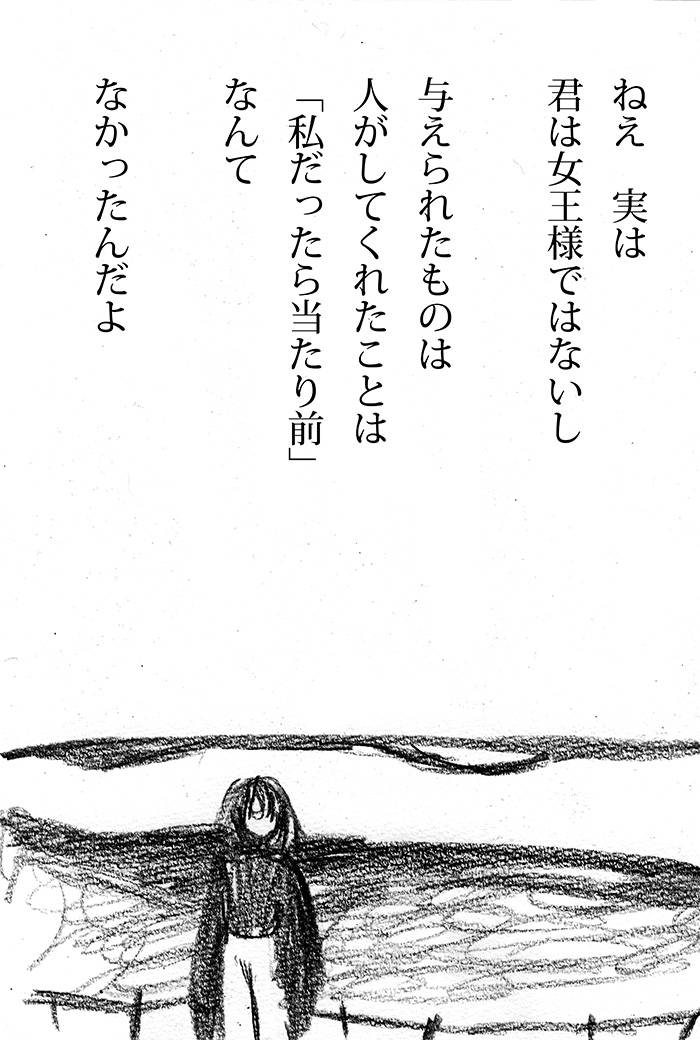 ねえ　実は
君は女王様ではないし
与えられたものは
人がしてくれたことは
「私だったら当たり前」
なんて
なかったんだよ